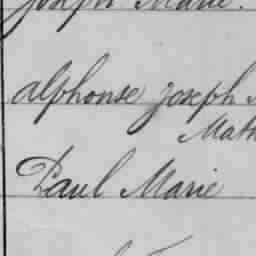 Joseph Marie.
Alphonse Joseph
Math
Paul Marie